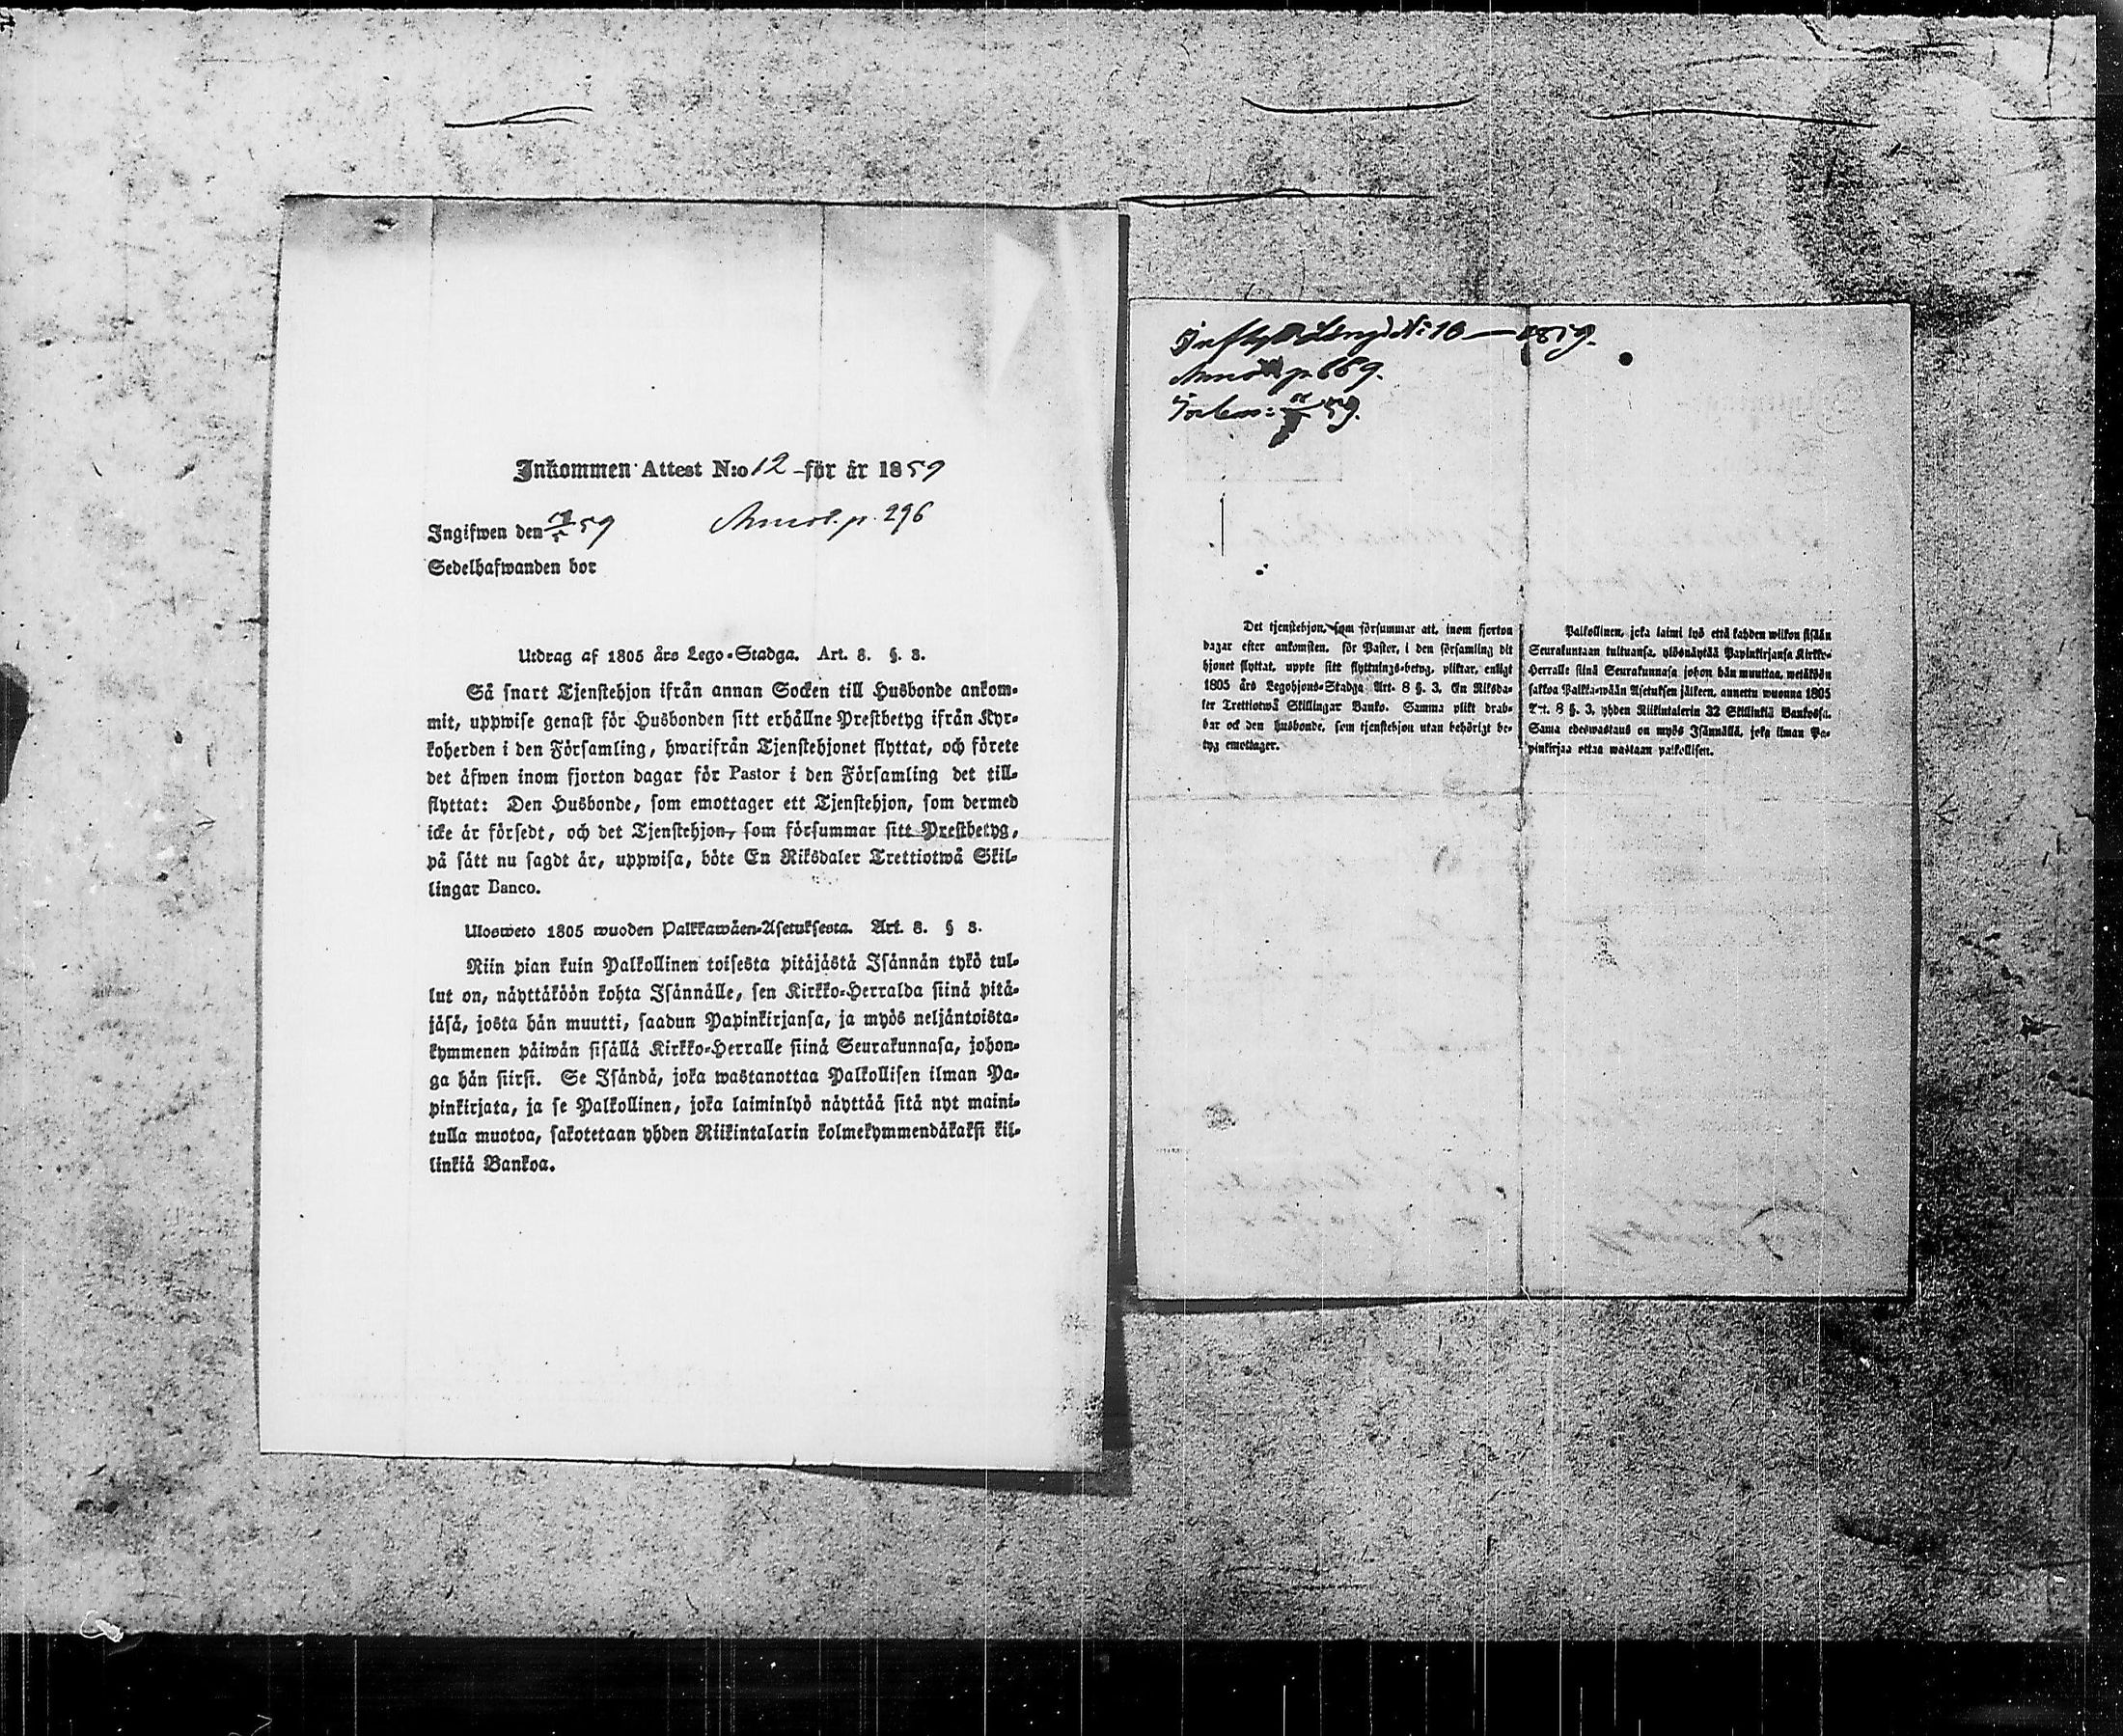 Inkommen Attest N:o 12 för år 1859
Ingifwen den 59 Annot. p. 296
Sedelhafwanden bor
Utdrag af 1805 års Lego-Stadga. Art. 8. §. 3.
Så snart Tjenstehjon ifrån annan Socken till Husbonde ankom-
mit, uppwise genast för Husbonden sitt erhållne Prestbetyg ifrån Kyr-
koherden i den Församling, hwarifrån Tjenstehjonet flyttat, och förete
det äfwen inom fjorton dagar för Pastor i den Församling det till-
flyttat: Den Husbonde, som emottager ett Tjenstehjon, som dermed
icke är försedt, och det Tjenstehjon, som försummar sitt Prestbetyg,
på sätt nu sagdt är, uppwisa, böte En Riksdaler Trettiotwå Skil-
lingar Banco.
Ulosweto 1805 wuoden Palkkawäen-Asetuksesta. Art. 8. § 3.
Niin pian kuin Palkollinen toisesta pitäjästä Isännän tykö tul-
lut on, näyttäköön kohta Isännälle, sen Kirkko-Herralda siinä pitä-
jäsä, josta hän muutti, saadun Papinkirjansa, ja myös neljäntoista-
kymmenen päiwän sisällä Kirkko-Herralle siinä Seurakunnasa, johon-
ga hän siirsi. Se Isändä, joka wastanottaa Palkollisen ilman Pa-
pinkirjata, ja se Palkollinen, joka laiminlyö näyttää sitä nyt maini-
tulla muotoa, sakotetaan yhden Riikintalarin kolmekymmendäkaksi kil-
linkiä Bankoa.
Inflyttn Längd N:o 10 — 1859.
Annot p. 669.
59.
Det tjenstehjon, som försummar att, inom fjorton
dagar efter ankomsten, för Pastor, i den församling dit
hjonet flyttat, uppte sitt flyttnings-betyg, pliktar, enligt
1805 års Legohjons-Stadga Art. 8 §. 3, En Riksda-
ler Trettiotwå Skillingar Banko. Samma plikt drab-
bar ock den husbonde, som tjenstehjon utan behörigt be-
tyg emottager.
Palkollinen, joka laimi lyö että kahden wiikon sisään
Seurakuntaan tultuansa, ylösnäytää Papinkirjansa Kirkko-
Herralle siinä Seurakunnasa johon hän muuttaa, wetäköön
sakkoa Palkka-wään Asetuksen jälkeen, annettu wuonna 1805
Art. 8 §. 3, yhden Riikintalerin 32 Skillinkiä Bankossa.
Sama edeswastaus on myös Isännällä, joka ilman Pa-
pinkirjaa ottaa wastaan palkollisen.